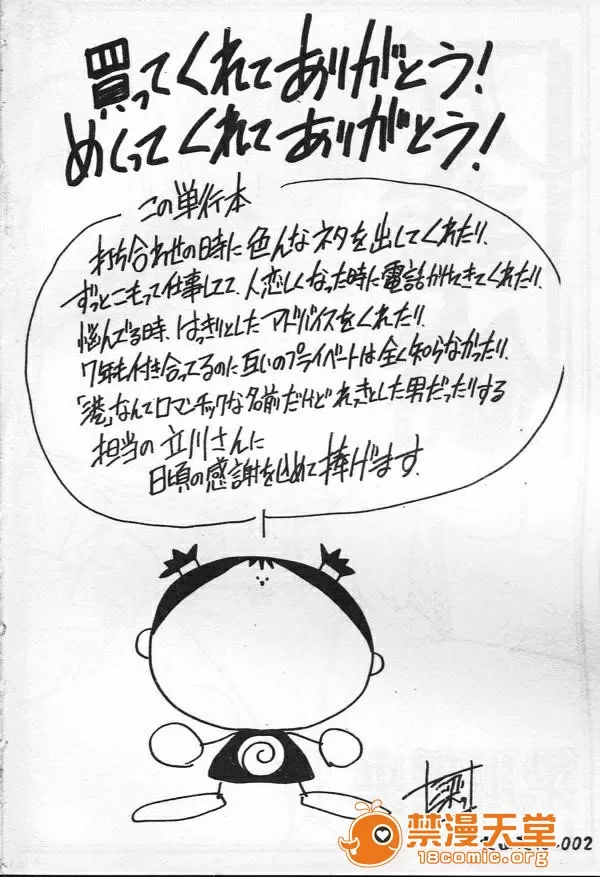 買ってくれてありがとう!
めくってくれてありがとう!
この単行本
打ち合わせの時に色んなネタを出してくれたり、
ずっとこもって仕事してて、人恋しくなった時に電話かけてきてくれたり、
悩んでる時、はっきりとしたアドバイスをくれたり、
7年も付き合ってるのに互いのプライベートは全く知らなかったり、
「港」なんてロマンチックな名前だけどれっきとした男だったりする
担当の立川さんに
日頃の感謝を込めて捧げます。
禁漫天堂
18comic.org
002